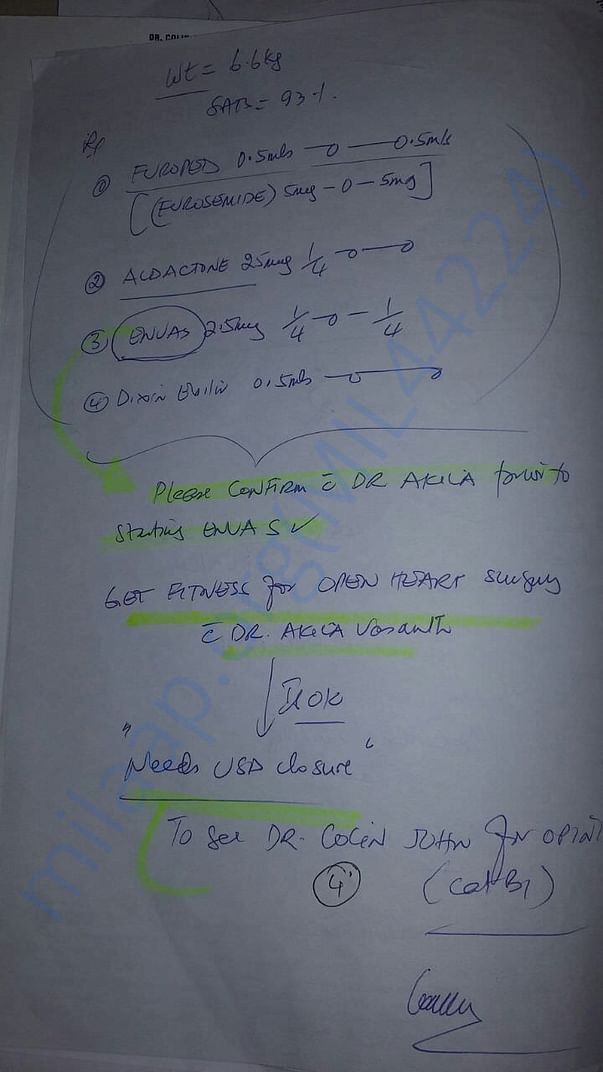 DR. COLIN
Wt = 6.6kg
SATS = 93%.
Rx
① FUROPED 0.5mls — 0 — 0.5mls
[(FUROSEMIDE) 5mg - 0 - 5mg]
② ALDACTONE 25mg 1/4 - 0 - 0
③ ENVAS 2.5mg 1/4 - 0 - 1/4
④ Dixin Elixir 0.5mls - 0 - 0
Please CONFIRM c̄ DR AKILA prior to
starting ENVAS ✓
GET FITNESS for OPEN HEART surgery
c̄ DR. AKILA Vasanth
↓ If OK
"Needs VSD closure"
To see DR. COLIN JOHN for OPINI
④ (Cat B1)
milaap.org(MIL44224)